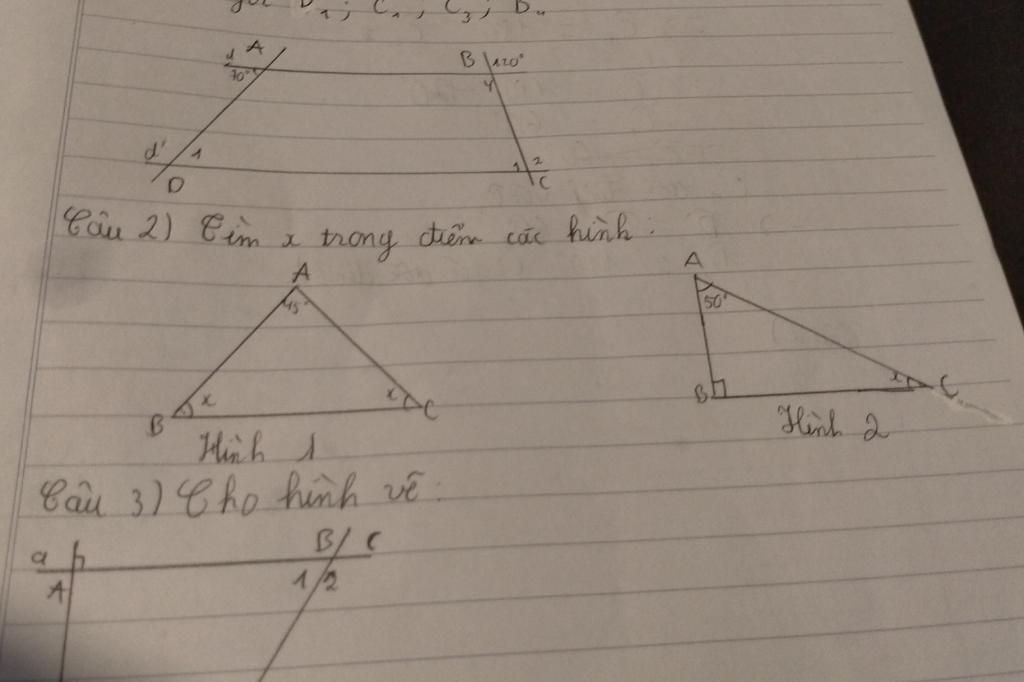 D₁; C₁, C₃; B₄
d A
70°
B 120°
4
d' 1
D
1 2
C
Câu 2) Tìm x trong điểm các hình:
A
45°
B x
x C
Hình 1
A
50°
B
x C
Hình 2
Câu 3) Cho hình vẽ:
a
A
B C
1 2